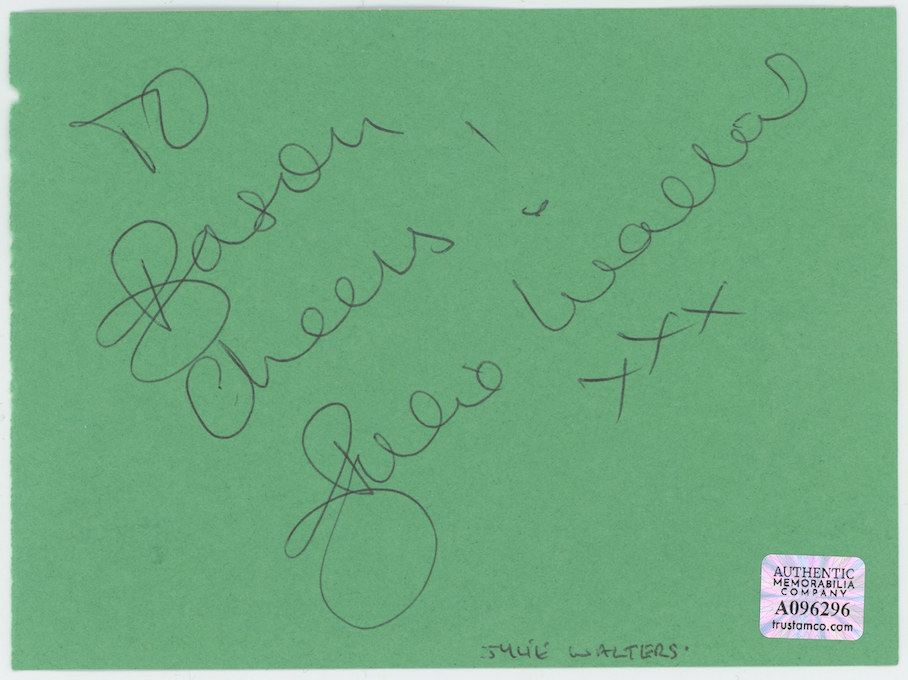 To
Jason
Cheers!
Julie Walters
xxx
AUTHENTIC
MEMORABILIA
COMPANY
A096296
trustamco.com
JULIE WALTERS.